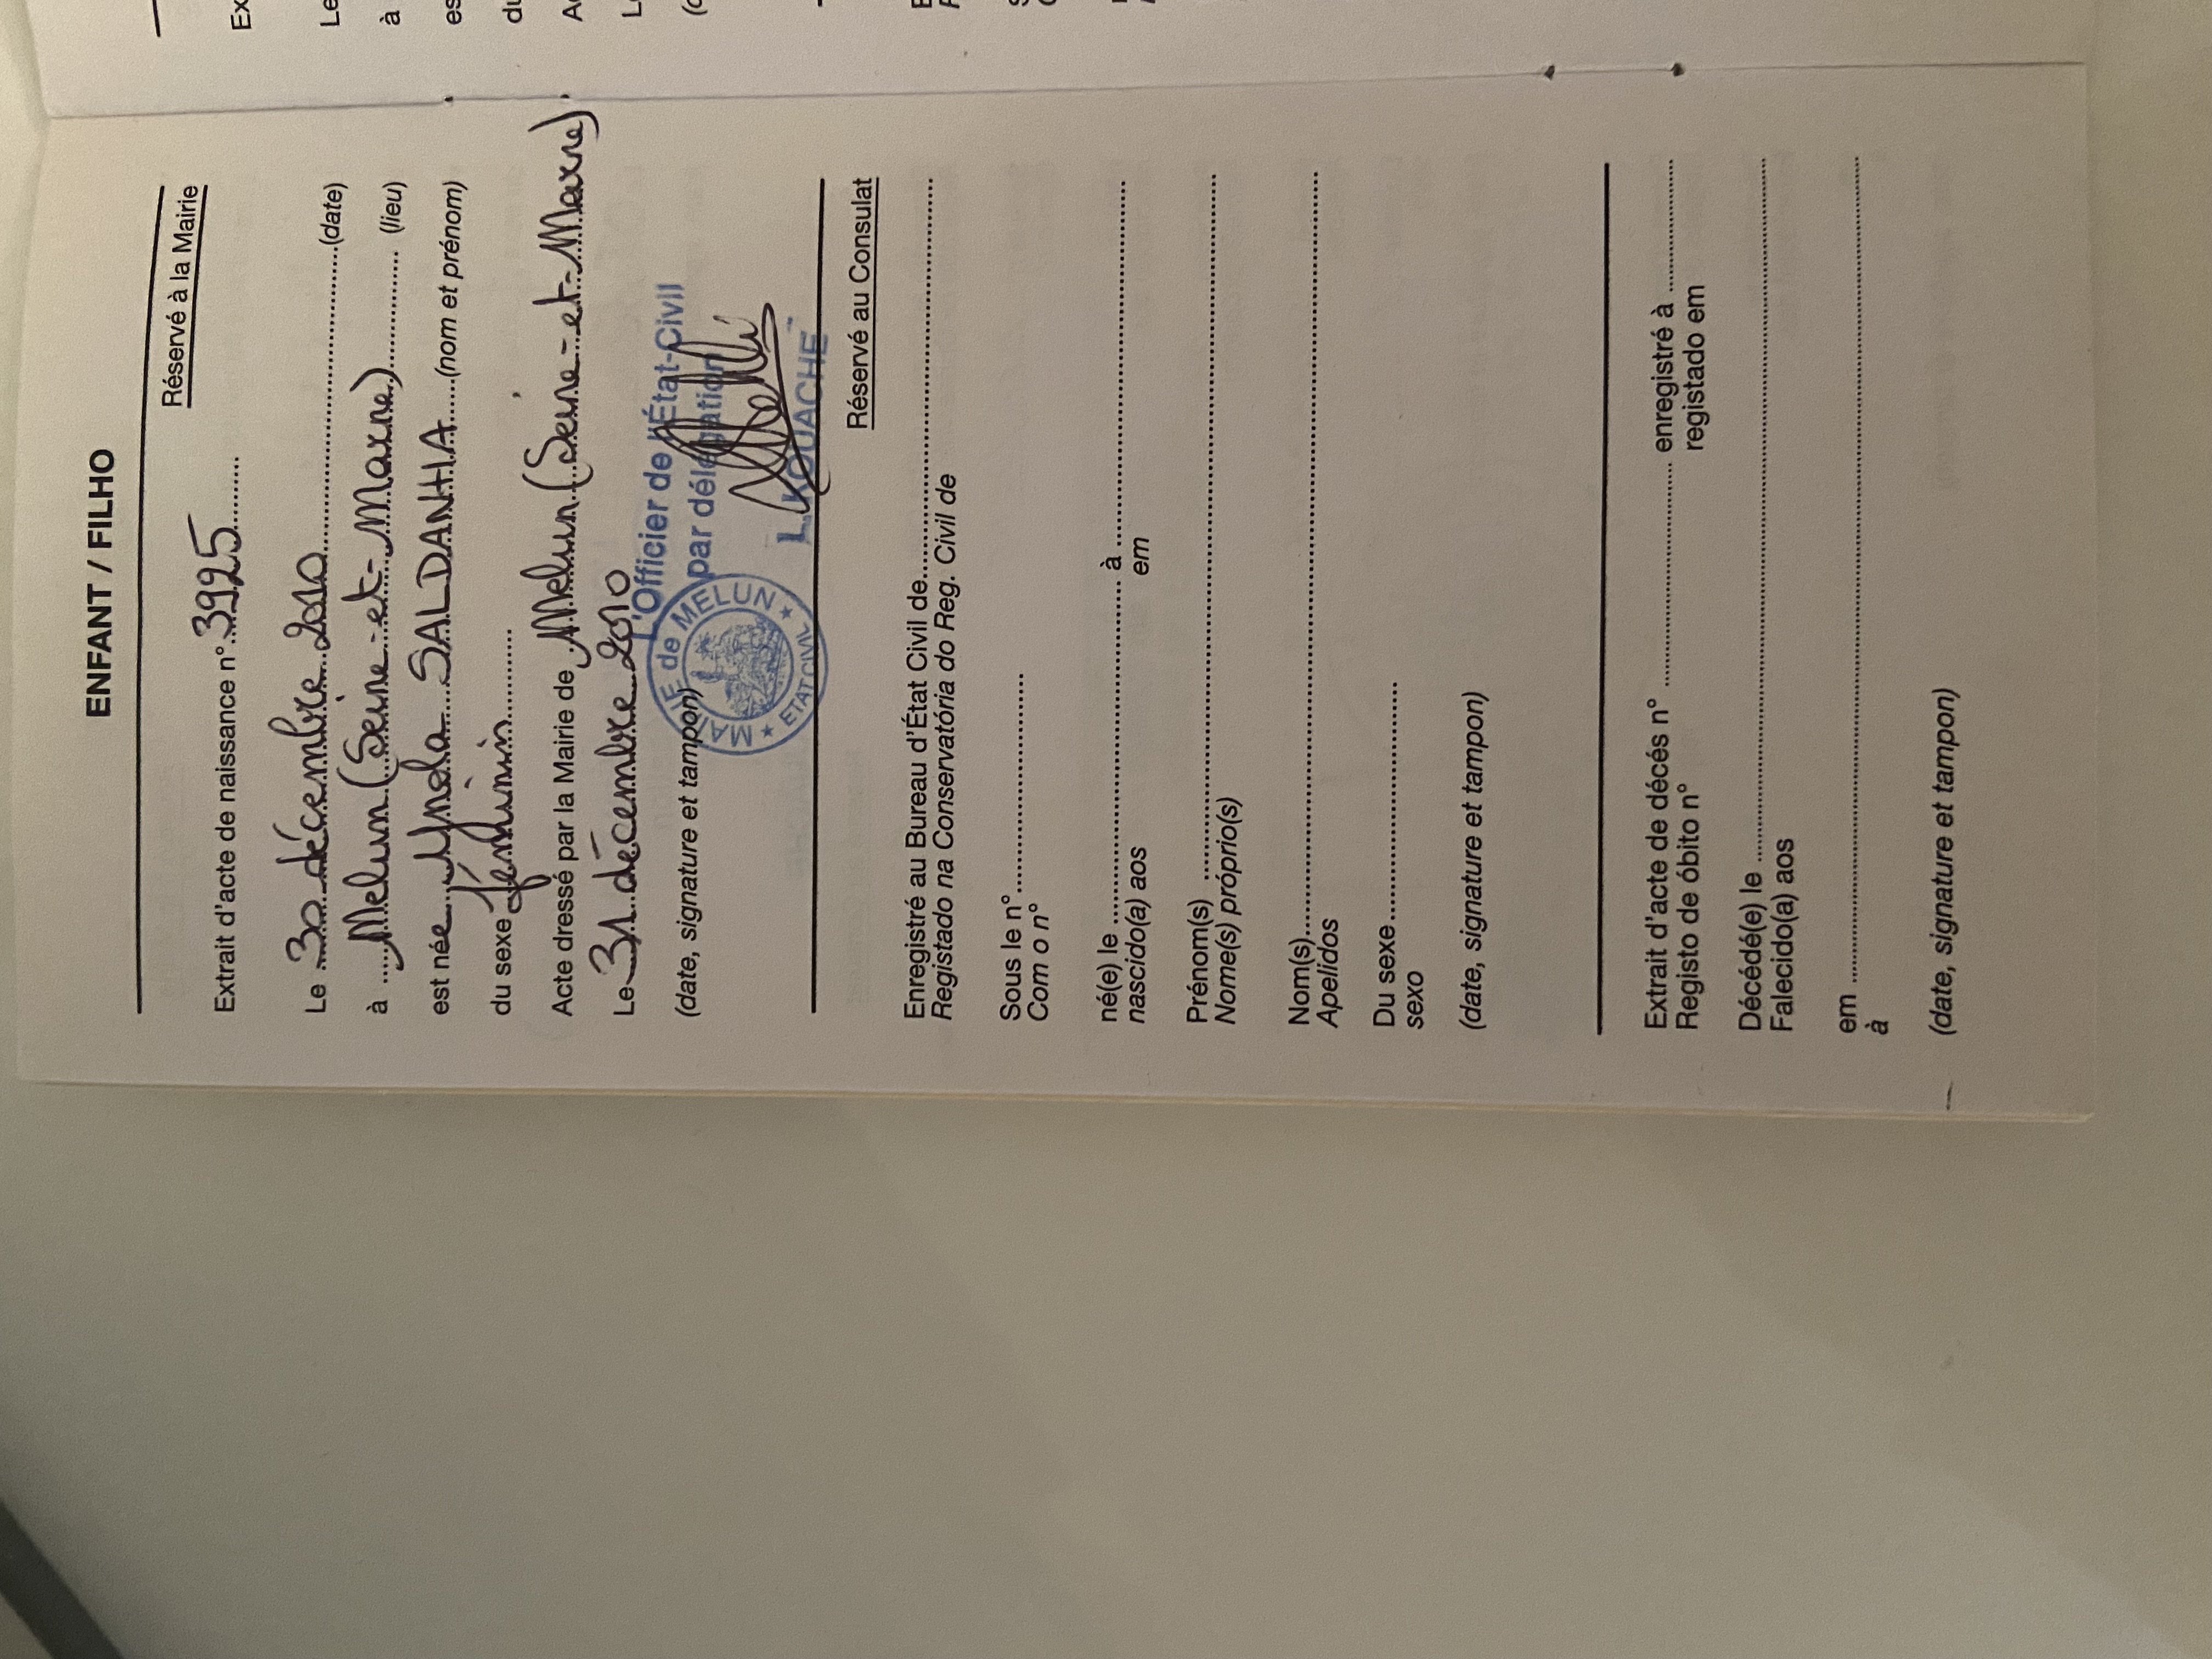 ENFANT / FILHO
Réservé à la Mairie
Extrait d'acte de naissance n° 3925
Le 30 décembre 2010 (date)
à Melun (Seine-et-Marne) (lieu)
est née SALDANHA (nom et prénom)
du sexe féminin
Acte dressé par la Mairie de Melun (Seine-et-Marne)
Le 31 décembre 2010
L'Officier de l'État-Civil
par délégation
(date, signature et tampon)
MAIRIE de MELUN
★ ETAT CIVIL ★
L. KOUACHE
Réservé au Consulat
Enregistré au Bureau d'État Civil de
Registado na Conservatória do Reg. Civil de
Sous le n°
Com o n°
né(e) le à
nascido(a) aos em
Prénom(s)
Nome(s) próprio(s)
Nom(s)
Apelidos
Du sexe
sexo
(date, signature et tampon)
Extrait d'acte de décés n° enregistré à
Registo de óbito n° registado em
Décédé(e) le
Falecido(a) aos
em
à
(date, signature et tampon)
Ex
Le
à
es
du